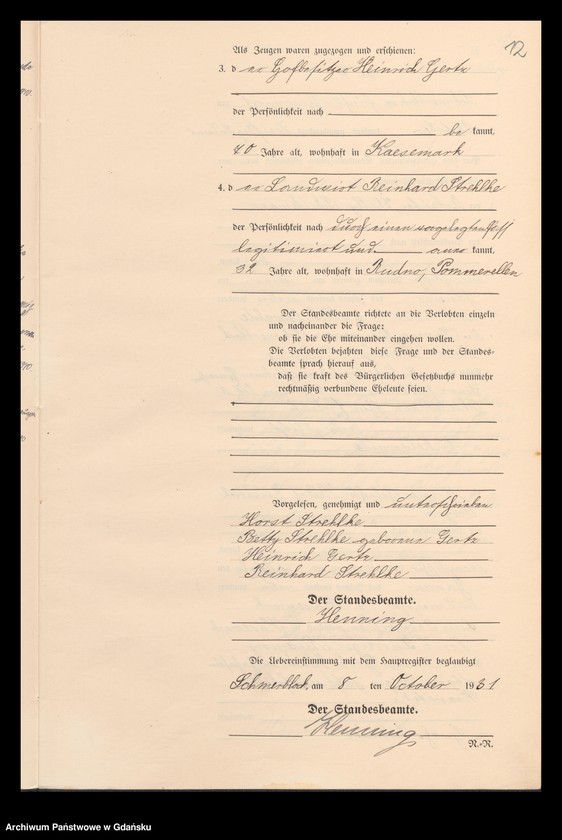 12
Als Zeugen waren zugezogen und erschienen:
3. der Hofbesitzer Heinrich Gertz
der Persönlichkeit nach
be kannt,
40 Jahre alt, wohnhaft in Kaesemark
4. der Landwirt Reinhard Strehlke
der Persönlichkeit nach durch einen vorgelegten Paß
legitimiert und aner kannt,
32 Jahre alt, wohnhaft in Rudno, Pommerellen
Der Standesbeamte richtete an die Verlobten einzeln
und nacheinander die Frage:
ob sie die Ehe miteinander eingehen wollen.
Die Verlobten bejahten diese Frage und der Standes-
beamte sprach hierauf aus,
daß sie kraft des Bürgerlichen Gesetzbuchs nunmehr
rechtmäßig verbundene Eheleute seien.
Vorgelesen, genehmigt und unterschrieben
Horst Strehlke
Betty Strehlke geborene Gertz
Heinrich Gertz
Reinhard Strehlke
Der Standesbeamte.
Henning
Die Uebereinstimmung mit dem Hauptregister beglaubigt
Schmerblock, am 8 ten October 1931
Der Standesbeamte.
Henning
N.-R.
Archiwum Państwowe w Gdańsku